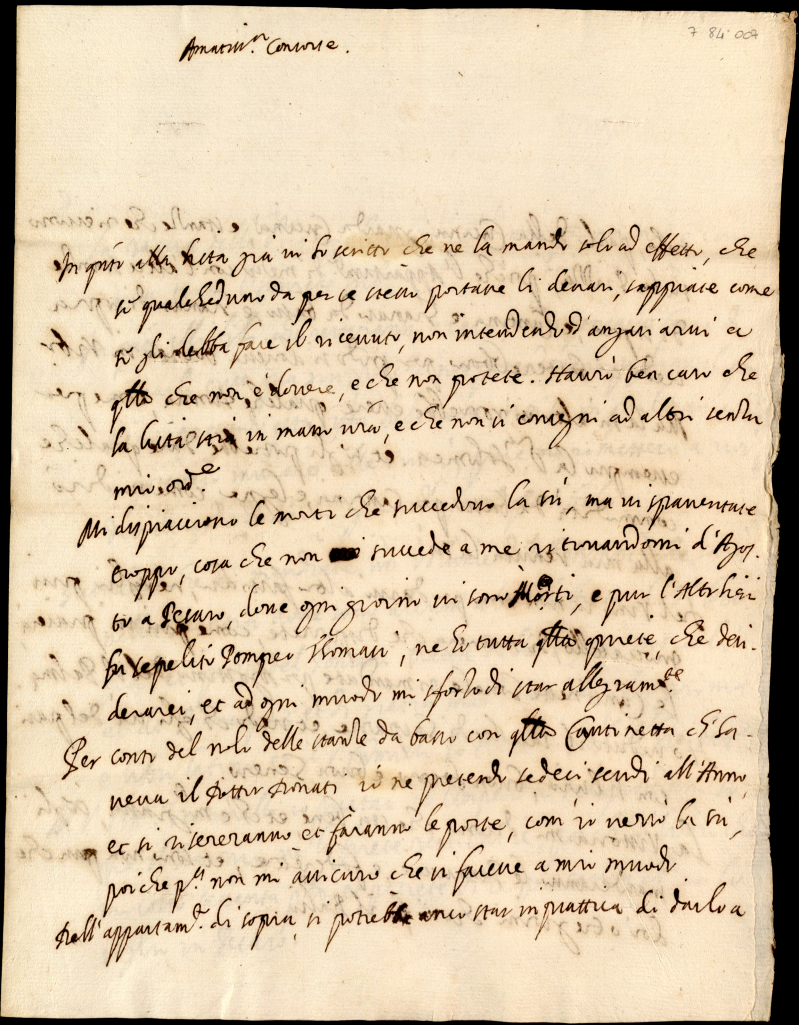 7 84 007
Amatiss.ma Consorte.
In q.to alla lista già vi hò scritto che ne la mando solo ad effetto, che
se qualcheduno da per se stesso portasse li denari, sappiate come
se gli debba fare il ricevuto, non intendendo d'angariarvi a
q.llo che non è dovere, e che non potete. Havrò ben caro che
la lista stia in mano v̄ra, e che non si consegni ad altri senza
mio ord.e
Mi dispiacciono le morti che succedono la sù, ma vi spaventate
troppo, cosa che non succede a me ritrovandomi d'Agos-
to a Pesaro, dove ogni giorno vi sono Morti, e pur l'Altr'hieri
fu sepelito Pompeo, ne hò tutta q.lla quiete, che desi-
derarei, et ad ogni modo mi sforzo di star allegram.te
Per conto del nolo delle stanze da basso con q.lla Cantinetta ch'ha-
veva il Dottor Donati io ne pretendo sedeci scudi all'Anno,
et si risereranno et faranno le porte, com'io verrò la sù,
poiche p.a non mi assicuro che si facesse a mio modo
Dell'appartam.to di sopra, si potrebbe anco star in prattica di darlo a